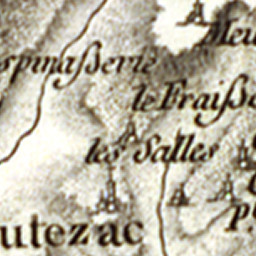 Meu
spinaßerie
le Fraiße
les Salles
utezac